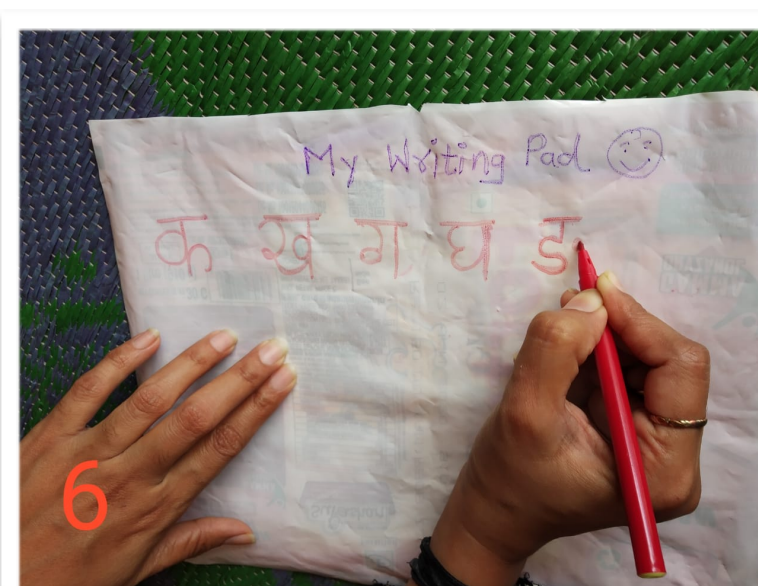 My Writing Pad
क ख ग घ ड
6